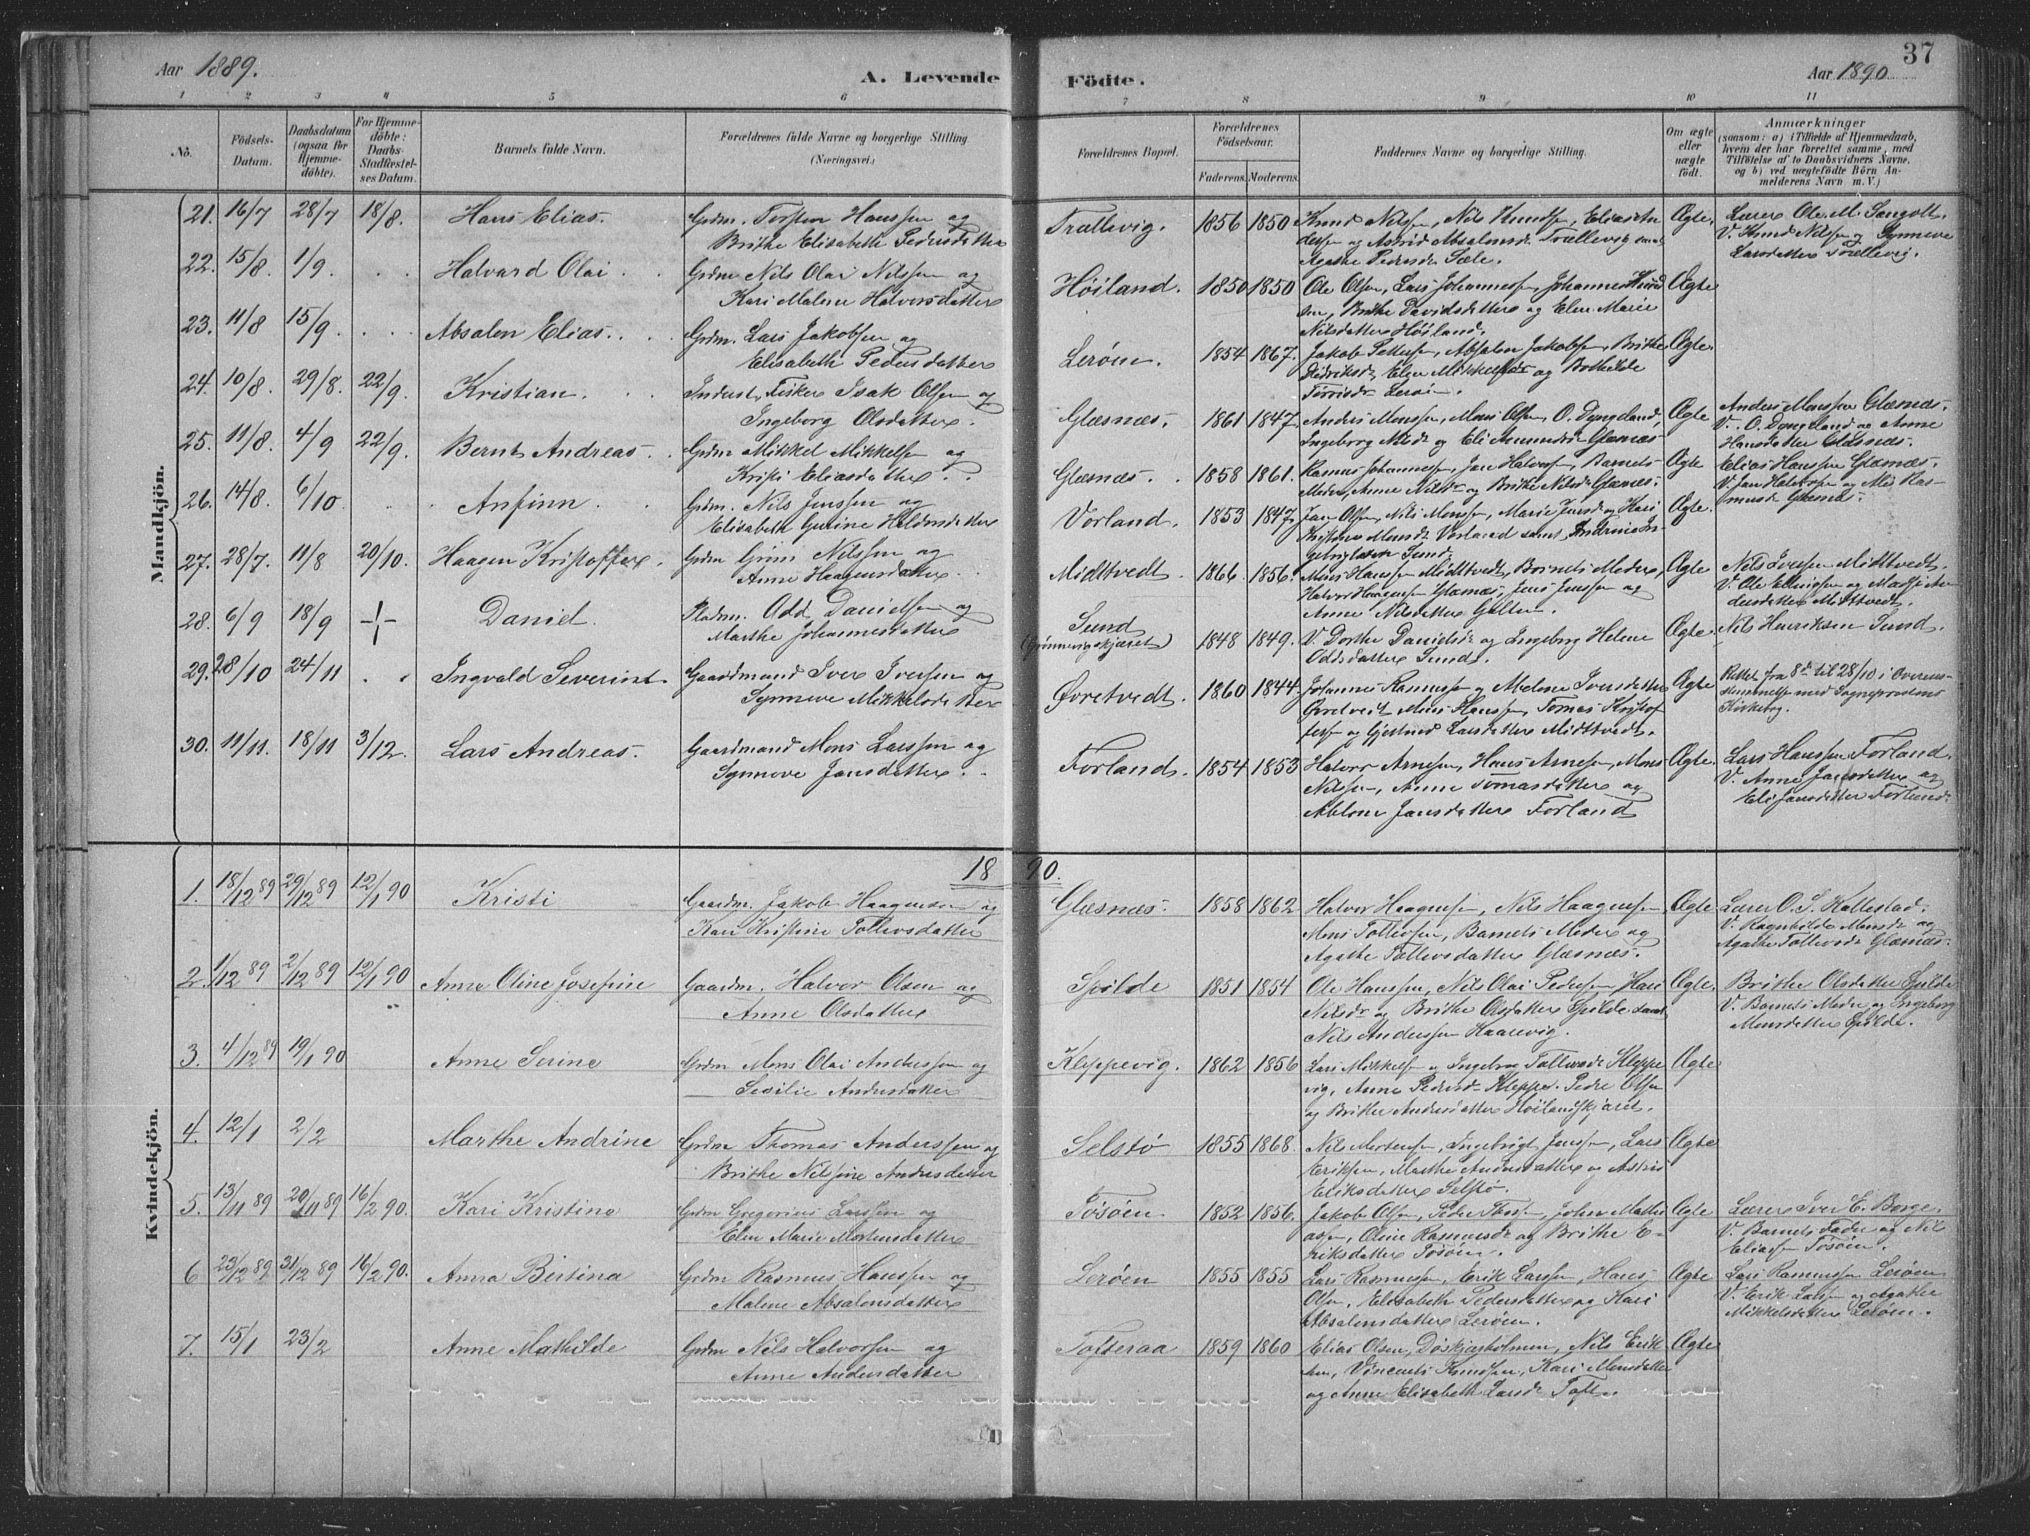 37
Aar 1889. A. Levende Födte. Aar 1890
1 2 3 4 5 6 7 8 9 10 11
No. Födsels-Datum. Daabsdatum (ogsaa for Hjemmedöbte). For Hjemmedöbte: Daabs-Stadfæstelses Datum. Barnets fulde Navn. Forældrenes fulde Navne og borgerlige Stilling (Næringsvei.) Forældrenes Bopæl. Forældrenes Födselsaar. Faderens. Moderens. Faddernes Navne og borgerlige Stilling. Om ægte eller uægte födt. Anmærkninger (saasom: a) i Tilfælde af Hjemmedaab, hvem der har forrettet samme, med Tilföielse af to Daabsvidners Navne, og b) ved uægtefödte Börn Anmelderens Navn m. V.)
Mandkjön.
21. 16/7 28/7 18/8 Hans Elias. Grdm. Torsten Hanssen og Trællevig. 1856 1850 Knud Nilsen, Nils Knudsen, Elias An Ægte. Lærer Ole M. Sangolt.
Brithe Elisabeth Pedersdatter dersen og Astrid Absalonsdr Trællevig samt V. Knud Nilsen og Synneve
Agathe Pedersdr Sæle. Larsdatter Trællevig.
22. 15/8 1/9 Halvard Olai Grdm Nils Olai Nilssen og Høiland. 1850 1850 Ole Olsen, Lars Johannessen, Johannes Knud Ægte
Kari Malene Halversdatter sen, Brithe Davidsdatter og Elen Marie
Nilsdatter Høiland.
23. 11/8 15/9 Absalon Elias. Grdm. Lars Jakobsen og Lerøen. 1854 1867. Jakob Pettersen, Absalon Jakobsen, Brithe Ægte.
Elisabeth Pedersdatter Didriksdr, Elen Mikkelsdr og Bothilde
Lerøen.
24. 10/8 29/8. 22/9 Kristian. Inderst, Fisker Isak Olsen og Glæsnæs. 1861 1847. Anders Monssen, Mons Olsen, O. Dyngeland, Ægte Anders Monssen Glæsnæs.
Ingeborg Olsdatter. Ingeborg Monsdr og Eli Amundsdr Glæsnæs V. O. Dyngeland og Anne
Hansdatter Glæsnæs.
25. 11/8. 4/9 22/9. Bernt Andreas Grdm Mikkel Mikkelsen og Glæsnæs. 1858 1861. Rasmus Johannessen, Jan Halvorsen, Barnets Ægte Elias Hanssen Glæsnæs.
Kristi Eliasdatter. Moder, Anne Nilsdr og Brithe Nilsdr Glæsnæs. V. Jan Halvorsen og
Glæsnæs.
26. 14/8. 6/10 Anfinn Grdm. Nils Jenssen og Vorland. 1853 1847. Jan Olsen, Nils Monssen, Marie Jensdr Kari Ægte.
Elisabeth Gurine Haldorsdatter Kristine Monsdr Vorland samt
Sund.
27. 28/7. 11/8 20/10. Haagen Kristoffer. Grdm Grim Nilssen og Midttvedt 1866. 1856. Mons Hanssen Midttvedt, Barnets Moder, Ægte Nils Iversen Midttvedt.
Anne Haagensdatter Halvor Haagensen Glæsnæs, Jens Jenssen og V. Ole Ellingsen og
Anne Nilsdatter Golten. Midttvedt.
28. 6/9 18/9 Daniel. Pladsm. Odd Danielsen og Sund 1848 1849. V. Dorthe Danielsdr og Ingeborg Helene Ægte Nils Henriksen Sund.
Marthe Johannesdatter (Grønningskjæret) Oddsdatter Sund.
29. 28/10 24/11 Ingvald Severin Gaardmand Iver Iversen og Øvretvedt. 1860 1844. Johannes Rasmussen og Malene Iversdatter Ægte Rettet fra 8de til 28/10 i Overens-
Synneve Mikkelsdatter Øvretveit Mons Hanssen, Tomas Kristof stemmelse med Sogneprestens
fersen og Gjertrud Larsdatter Midttvedt. Kirkebog.
30. 11/11. 18/11 3/12. Lars Andreas. Gaardmand Mons Larssen og Forland. 1854 1853 Halvor Arnesen, Hans Arnesen, Mons Ægte. Lars Hanssen Forland.
Synnove Jansdatter. Nilsen, Anne Tomasdatter og V. Anne Jansdatter og
Ablone Jansdatter Forland Eli Jansdatter Forland.
1890.
Kvindekjön.
1. 18/12 89 29/12 89 12/1 90 Kristi Gaardm. Jakob Haagensen og Glæsnæs. 1858 1862 Halvor Haagensen, Nils Haagensen, Ægte Lærer O. S. Kallestad.
Kari Kristine Tollevsdatter Mons Tollevsen, Barnets Moder og V. Ragnhilde Monsdr og
Agathe Tollevsdatter Glæsnæs. Agathe Tollevsdr Glæsnæs.
2. 1/12 89 2/12 89 12/1 90 Anne Oline Josefine Gaardm. Halvor Olsen og Spilde 1851 1854 Ole Hanssen, Nils Olai Pedersen, Kari Ægte. Brithe Olsdatter Spilde
Anne Olsdatter Nilsdr og Brithe Olsdatter Spilde samt V. Barnets Moder og Ingeborg
Nils Anderssen Haarevig. Monsdatter Spilde.
3. 4/12 89 19/1 90 Anne Serine Grdm Mons Olai Anderssen og Kleppevig. 1862 1856 Lars Mikkelsen og Ingeborg Tollevsdr Kleppe Ægte
Sesilie Andersdatter vig, Anne Pedersdr Kleppe. Peder Olsen
og Brithe Andersdatter Høilandskjæret.
4. 12/1 2/2 Marthe Andrine Grdm Thomas Anderssen og Selstø 1855 1868. Nils Mortensen, Ingebrigt Jenssen, Lars Ægte
Brithe Nilsine Andersdatter Erikssen, Marthe Andersdatter og Astrid
Eriksdatter Selstø.
5. 13/11 89 20/11 89 16/2 90. Kari Kristine Grdm Gregorius Larssen og Tøsøen. 1852 1856. Jakob Olsen, Peder Johan Matthi Ægte Lærer Iver E. Borge.
Elen Marie Mortensdatter assen, Oline Rasmusdr og Brithe E- V. Barnets Fader og Nils
riksdatter Tøsøen. Eliassen Tøsøen.
6 23/12 89 31/12 89 16/2 90. Anna Bertina Grdm Rasmus Hanssen og Lerøen 1855 1855 Lars Rasmussen, Erik Larssen, Hans Ægte Lars Rasmussen Lerøen
Malene Absalonsdatter Olsen, Elisabeth Pedersdatter og Kari V. Erik Larssen og Agathe
Absalonsdatter Lerøen. Mikkelsdatter Lerøen.
7. 15/1 23/2 Anne Mathilde Grdm Nils Halvorsen og Tofteraa 1859 1860 Elias Olsen, Døskjærholmen, Nils Erik Ægte
Anne Andersdatter sen, Vincents Knudsen, Kari Monsdatter
og Anne Elisabeth Larsdr Tofte.